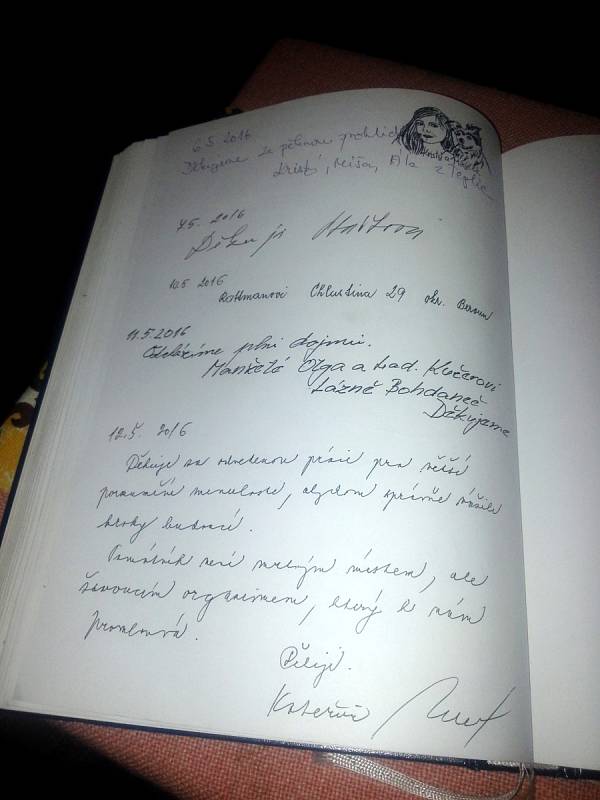 6.5. 2016
Děkujeme za pěknou prohlídku
Míša, z Teplic
7.5. 2016
Děkuji
10.5 2016
Rottmanovi Chlustina 29 okr. Beroun
11.5.2016
Odcházíme plni dojmů.
Manželé Olga a Lad. Kučerovi
Lázně Bohdaneč
Děkujeme
12.5. 2016
Děkuji za odvedenou práci pro větší
porozumění minulosti, abychom správně
kroky budoucí.
Památník není mrtvým místem, ale
živoucím organismem, který k nám
promlouvá.
Přeji.